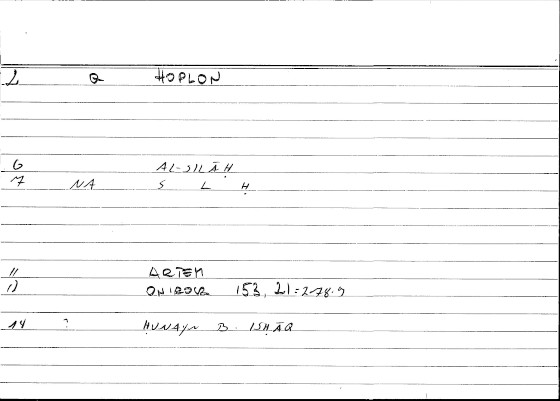 2 Q HOPLON
6 AL-SILĀḤ
7 NA S L Ḥ
11 ARTEM
12 ONIROCR 153, 21=278.9
14 ? ḤUNAYN B. ISḤĀQ